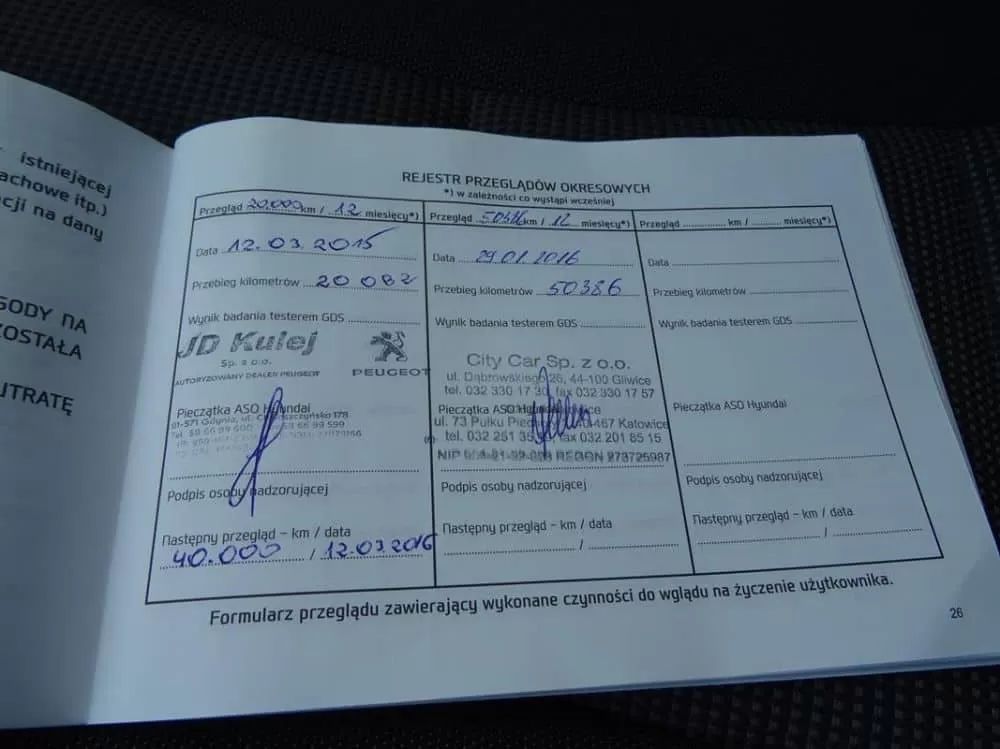 istniejącej
achowe itp.)
cji na dany
SODY NA
ZOSTAŁA
UTRATĘ
REJESTR PRZEGLĄDÓW OKRESOWYCH
*) w zależności co wystąpi wcześniej
Przegląd 20.000 km / 12 miesięcy*)
Data 12.03.2015
Przebieg kilometrów 20 082
Wynik badania testerem GDS
JD Kulej
Sp. z o.o.
AUTORYZOWANY DEALER PEUGEOT
PEUGEOT
Pieczątka ASO Hyundai
81-571 Gdynia, ul. 178
Podpis osoby nadzorującej
Następny przegląd - km / data
40.000 / 12.03.2016
Przegląd 50386 km / 12 miesięcy*)
Data 29.01.2016
Przebieg kilometrów 50386
Wynik badania testerem GDS
City Car Sp. z o.o.
ul. Dąbrowskiego 26, 44-100 Gliwice
tel. 032 330 17 30, fax 032 330 17 57
Pieczątka ASO Hyundai
ul. 73 Pułku Katowice
tel. 032 fax 032 201 85 15
NIP REGON 273725987
Podpis osoby nadzorującej
Następny przegląd - km / data
/
Przegląd km / miesięcy*)
Data
Przebieg kilometrów
Wynik badania testerem GDS
Pieczątka ASO Hyundai
Podpis osoby nadzorującej
Następny przegląd - km / data
/
Formularz przeglądu zawierający wykonane czynności do wglądu na życzenie użytkownika.
26